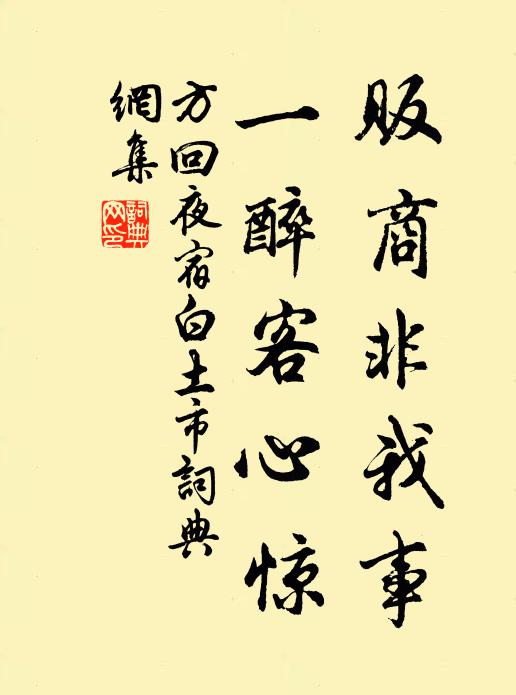 贩商非我事
一醉客心惊
方回夜宿白土市詞典
網集
詞典
网印